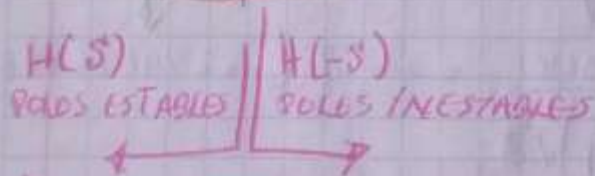 H(S)
POLOS ESTABLES
H(-S)
POLES INESTABLES